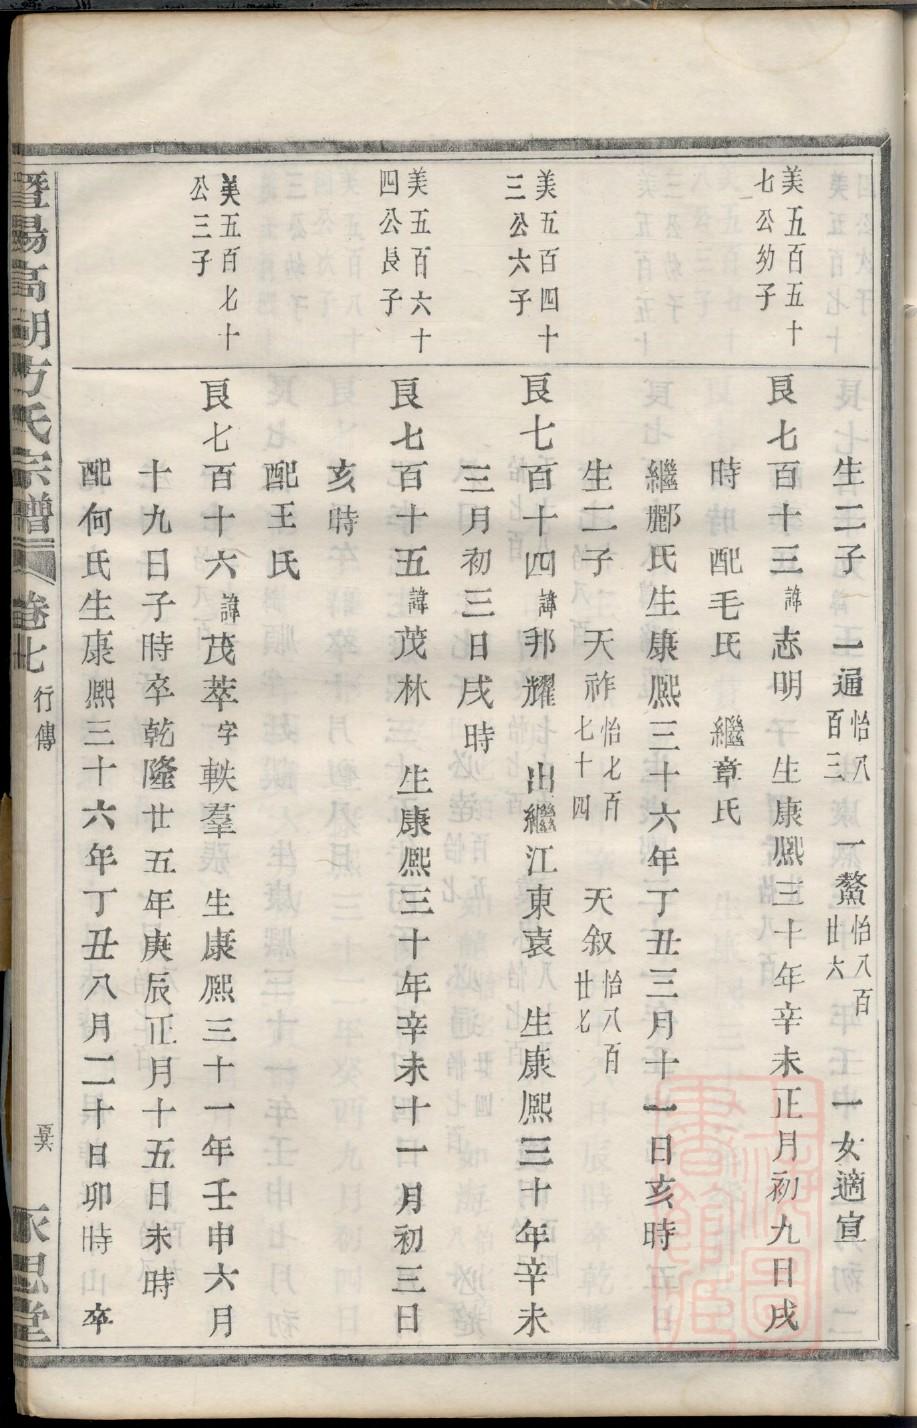 生二子 一通怡八百三 一鰲怡八百廿六 一女適宣
美五百五十七公幼子
良七百十三諱志明 生康熈三十年辛未正月初九日戌
時 配毛氏 繼章氏
繼酈氏生康熈三十六年丁丑三月十一日亥時
生二子 天祚怡七百七十四 天叙怡八百廿七
美五百四十三公六子
良七百十四諱邦耀 出繼江東袁 生康熈三十年辛未
三月初三日戌時
美五百六十四公長子
良七百十五諱茂林 生康熈三十年辛未十一月初三日
亥時
配王氏
美五百七十公三子
良七百十六諱茂萃字軼羣 生康熈三十一年壬申六月
十九日子時卒乾隆廿五年庚辰正月十五日未時
配何氏生康熈三十六年丁丑八月二十日卯時 卒
暨陽高湖方氏宗譜 卷七 行傳 永思堂